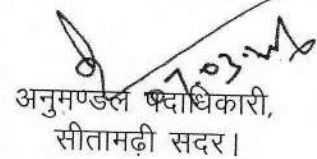 07.03.24
अनुमण्डल पदाधिकारी,
सीतामढ़ी सदर।